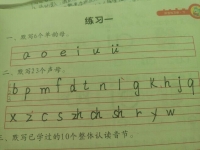 练习一
一、默写6个单韵母。
a o e i u ü
二、默写23个声母。
b p m f d t n l g k h j q
x z c s zh ch sh r y w
三、默写已学过的10个整体认读音节。